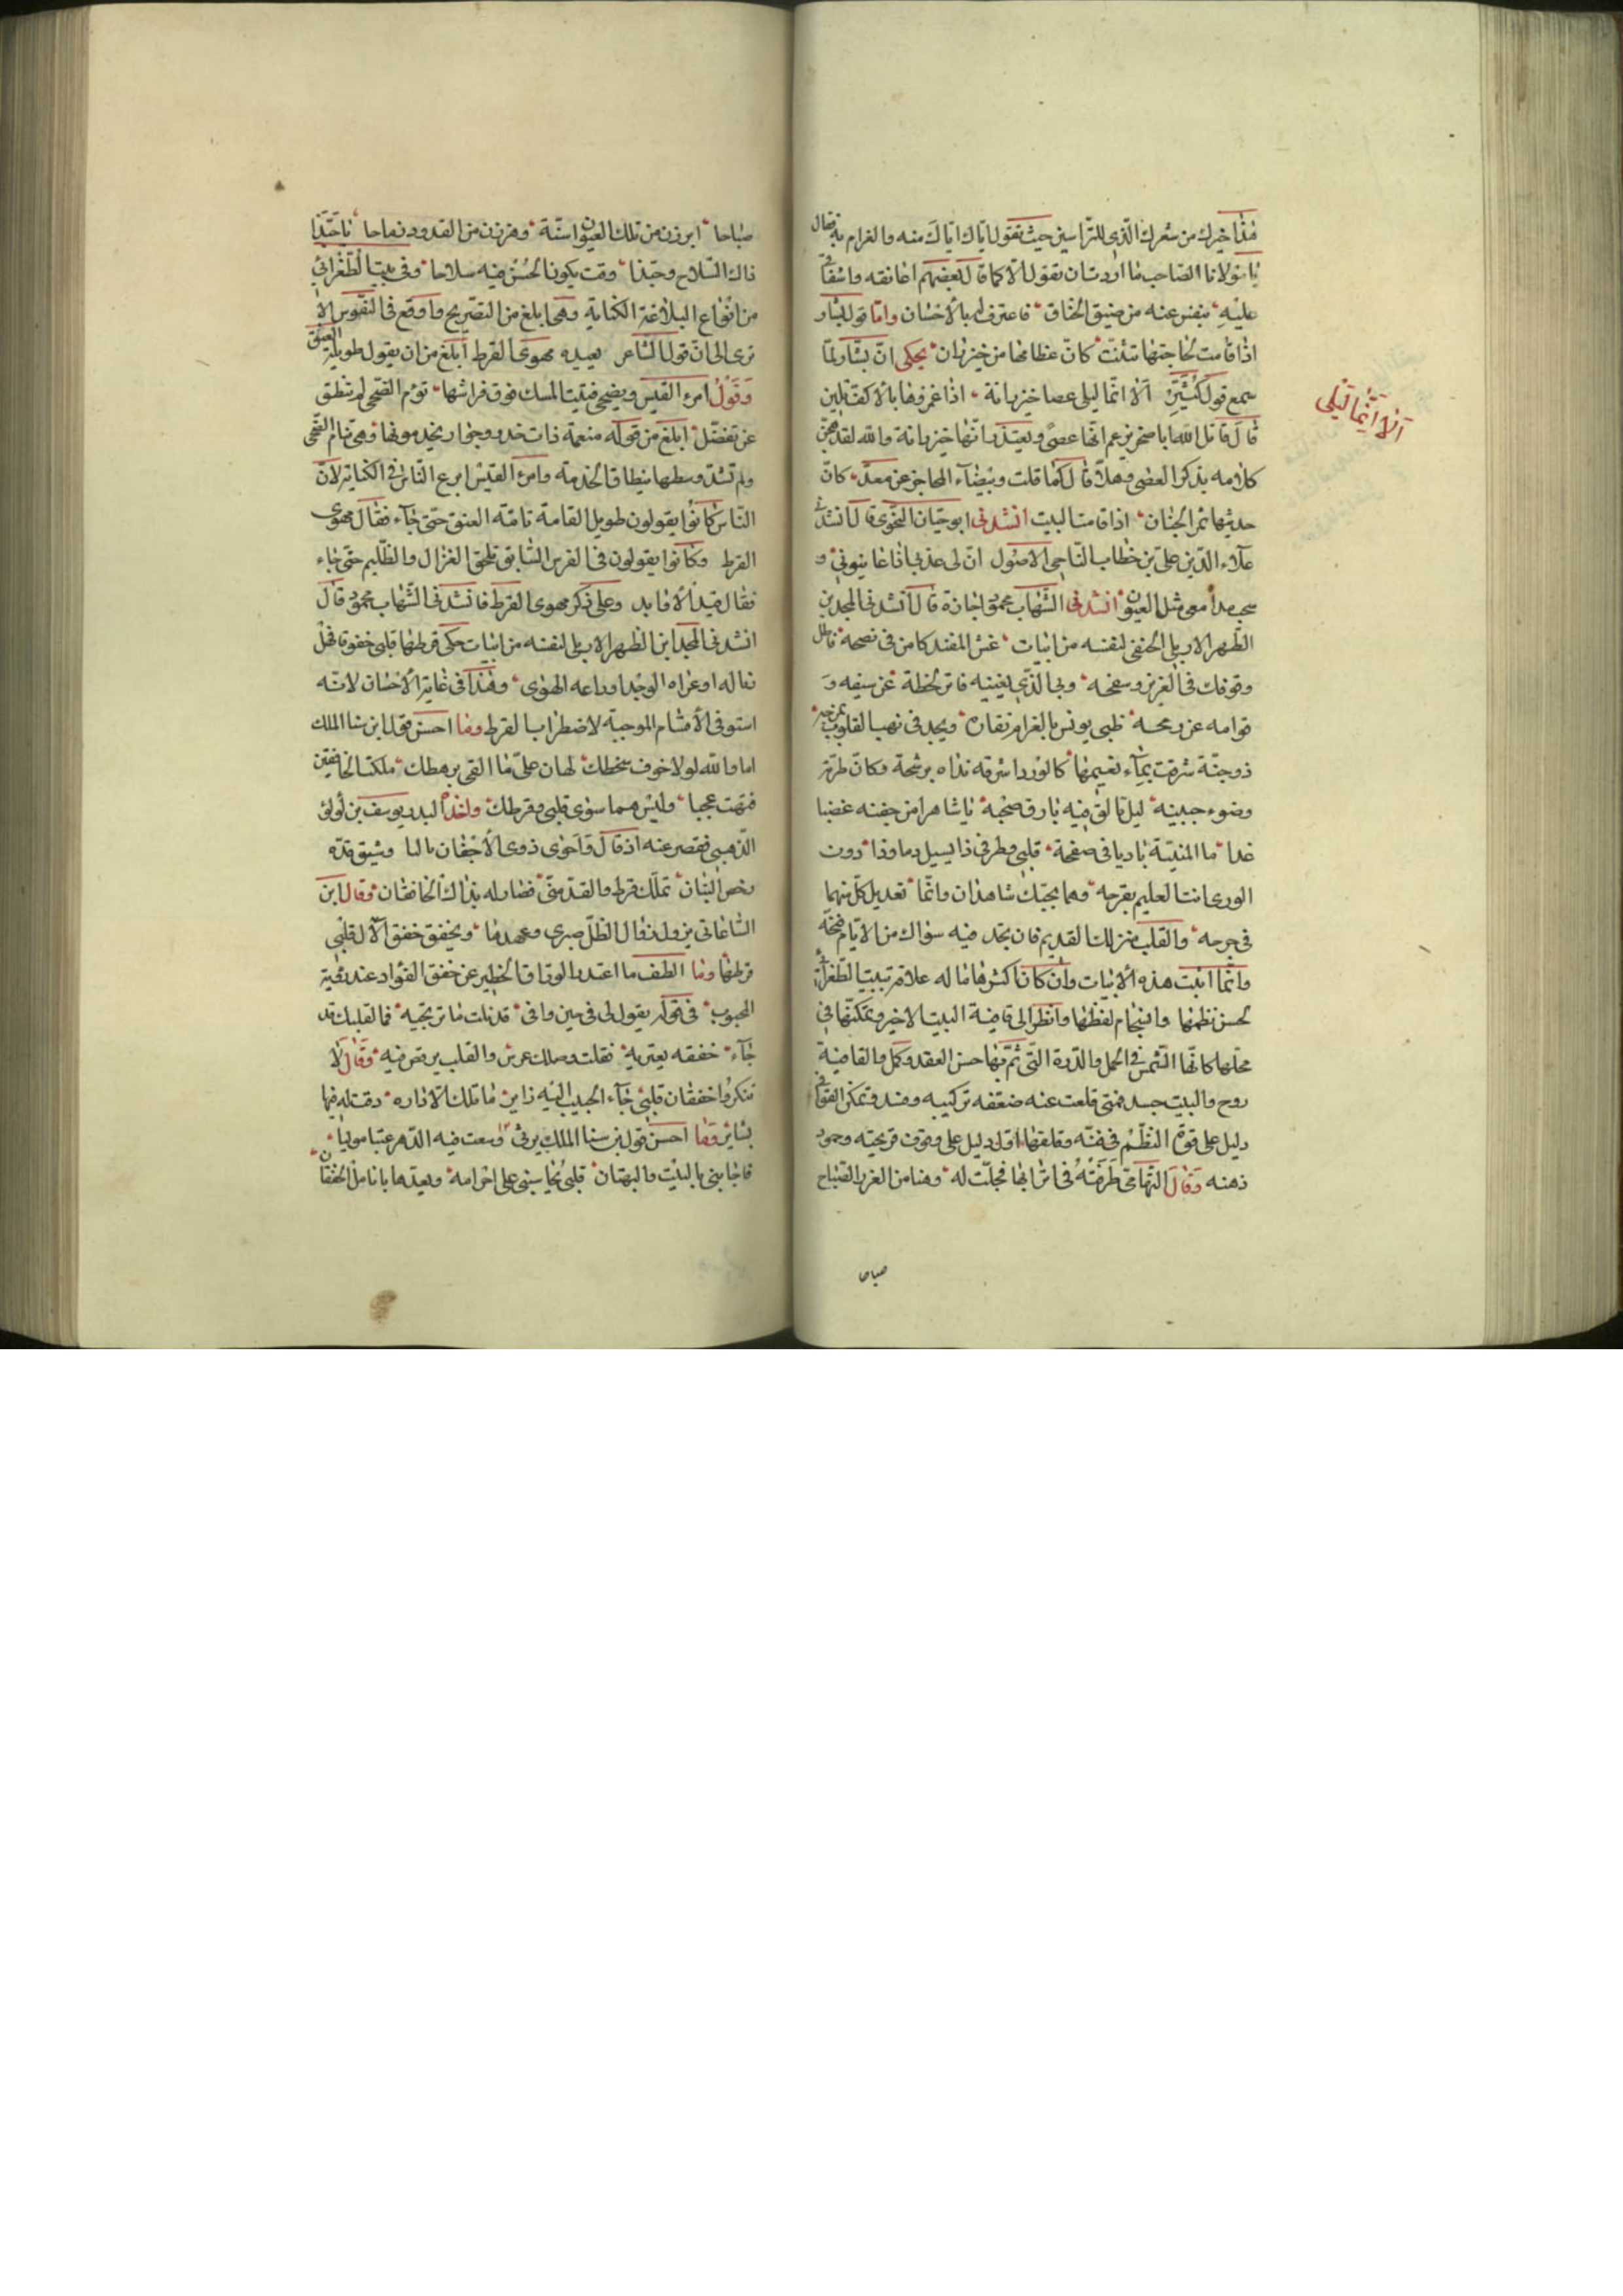 هذا خيرك من شعرك الذى للتراسين حيث تقول اياك اياك منه والغرام به فقال
يا مولانا الصاحب ما اردت ان تقول الا كما قال بعضهم اعانقه واشفاقى
عليه ينفس عنه من ضيق الخناق فاعترف له بالاحسان واما قول بشار
اذا قامت لحاجتها تثنت كان عظامها من خيزران يحكى ان بشار لما
سمع قول كثير الا انما ليلى عصا خيزرانة اذا غمزوها بالاكف تلين
قال قاتل الله ابا صخر يزعم انها عصى ويعتذر انها خيزرانة والله لقد هجن
كلامه بذكر العصى وهلا قال كما قلت وبيضاء المحاجر من معد كان
حديثها ثمر الجنان اذا قامت البيت انشدنى ابو حيان النحوى قال انشدنا
علاء الدين على بن خطاب الباجى الاصولى ان لى عذلى اذا عاينونى و
سحب مدامعى مثل العيون انشدنى الشهاب محمود اجازة قال انشدنى المجد بن
الظهير الاربلى الحنفى لنفسه من ابيات غش المفند كامن فى نصحه فاطل
وقوفك فى الغرير وسفحه وبى الذى يغنيه فاتر لحظة عن سيفه و
قوامه عن رمحه ظبى يونس بالغرام نفاره ويجد فى نهب القلوب بمزحه
ذو جنة شرقت بماء نعيمها كالورد اشرقه نداه برشحة وكان طرته
وضوء جبينه ليل تالق فيه بارق صحبه يا شاهرا من جفنه غضبا
غدا ماء المنية باديا فى صفحة قلبى وطرفى ذا يسيل دما وذا دون
الورى انت العليم بقرحه وهما بحبك شاهدان وانما تعديل كل منهما
فى جرحه والقلب منزلك القديم فان تجد فيه سواك من الايام فنحه
وانما اثبت هذه الابيات وان كان اكثرها ما له علاقة ببيت الطغرائى
لحسن نظمها وانسجام لفظها وانظر الى قافية البيت الاخير وتمكنها فى
محلها كانها الشمس فى الحمل والدرة التى تم بها حسن العقد وكمل والقافية
روح والبيت جسد فمتى قلعت عنه ضعفه تركيبه وفسد وتمكن القوافى
دليل على قوة النظم فى فنه وقلقها اول دليل على وقوف قريحته وجمود
ذهنه وقال التهامى طرقته فى اترابها فجلت له وهنا من الغرر الصباح
صباحا
الا انما ليلى
صباحا ابرزن من تلك العيون اسنة وهززن من القدود رماحا يا حبذا
ذاك السلاح وحبذا وقت يكون الحسن فيه سلاحا وفى بيت الطغرائى
من انواع البلاغة الكناية وهى ابلغ من التصريح واوقع فى النفوس الا
ترى الى ان قول الشاعر بعيدة مهوى القرط ابلغ من ان يقول طويلة العنق
وقول امرء القيس ويضحى فتيت المسك فوق فراشها نؤم الضحى لم تنطق
عن تفضل ابلغ من قوله منعمة ذات خدر وجوار يخدمونها وهى تنام الضحى
ولم تشد وسطها بنطاق الخدمة وامرء القيس ابرع الناس فى الكناية لان
الناس كانوا يقولون طويل القامة تامة العنق حتى جاء فقال مهوى
القرط وكانوا يقولون فى الفرس السابق تلحق الغزال والظليم حتى جاء
فقال قيد الاوابد وعلى ذكر مهوى القرط فانشدنى الشهاب محمود قال
انشدنى المجد ابن الظهير الاربلى لنفسه من ابيات حكى قرطها قلبى خفوقا فهل
نعاله او عراه الوجد او راعه الهوى وهذا فى غاية الاحسان لانه
استوفى الاقسام الموجبة لاضطراب القرط وما احسن قول ابن سنا الملك
اما والله لولا خوف سخطك لهان على ما القى برهطك ملكت الخافقين
فتهت عجبا وليس هما سوى قلبى وقرطك واخذ البدر يوسف بن لؤلؤ
الذهبى فقصر عنه اذ قال واحوى ذوى الاجفان بالسا وشيق قده
رخص البنان تملك قرط والقد منى فصار له بذاك الخافقان وقال ابن
الساعاتى يزول زوال الظل صبرى وعهدها ويخفق خفق الآل قلبى
قرطها وما الطف ما اعتذر الوراق الحظير عن خفق الفؤاد عند رؤية
المحبوب فى قوله يقول لى فى حين وافى قد نلت ما ترتجيه فما لقلبك قد
جاء خفقه يعتريه فقلت وصلك عرس والقلب يرقص فيه وقال لا
تنكروا خفقان قلبى جاء الحبيب اليه زاير ما تلك الا داره دقت له فيها
بشاير وما احسن قول بن سنا الملك يرثى وسعت فيه الدهر عتبا موليا
فاجابنى بالليت والبهتان قلبى يحاسبنى على اجرامه ويعدها بانامل الخفقان